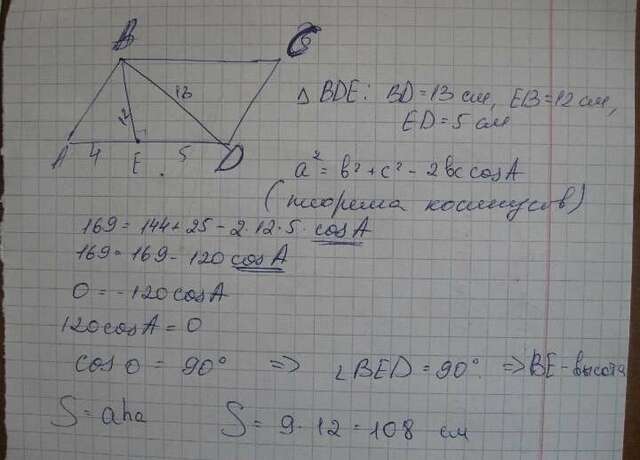 B C
12 13
A 4 E 5 D
Δ BDE: BD = 13 см, EB = 12 см,
ED = 5 см
a² = b² + c² - 2bc cosA
(теорема косинусов)
169 = 144 + 25 - 2·12·5·cosA
169 = 169 - 120cosA
0 = -120cosA
120cosA = 0
cos 0 = 90° => ∠BED = 90° => BE - высота
S = aha S = 9·12 = 108 см